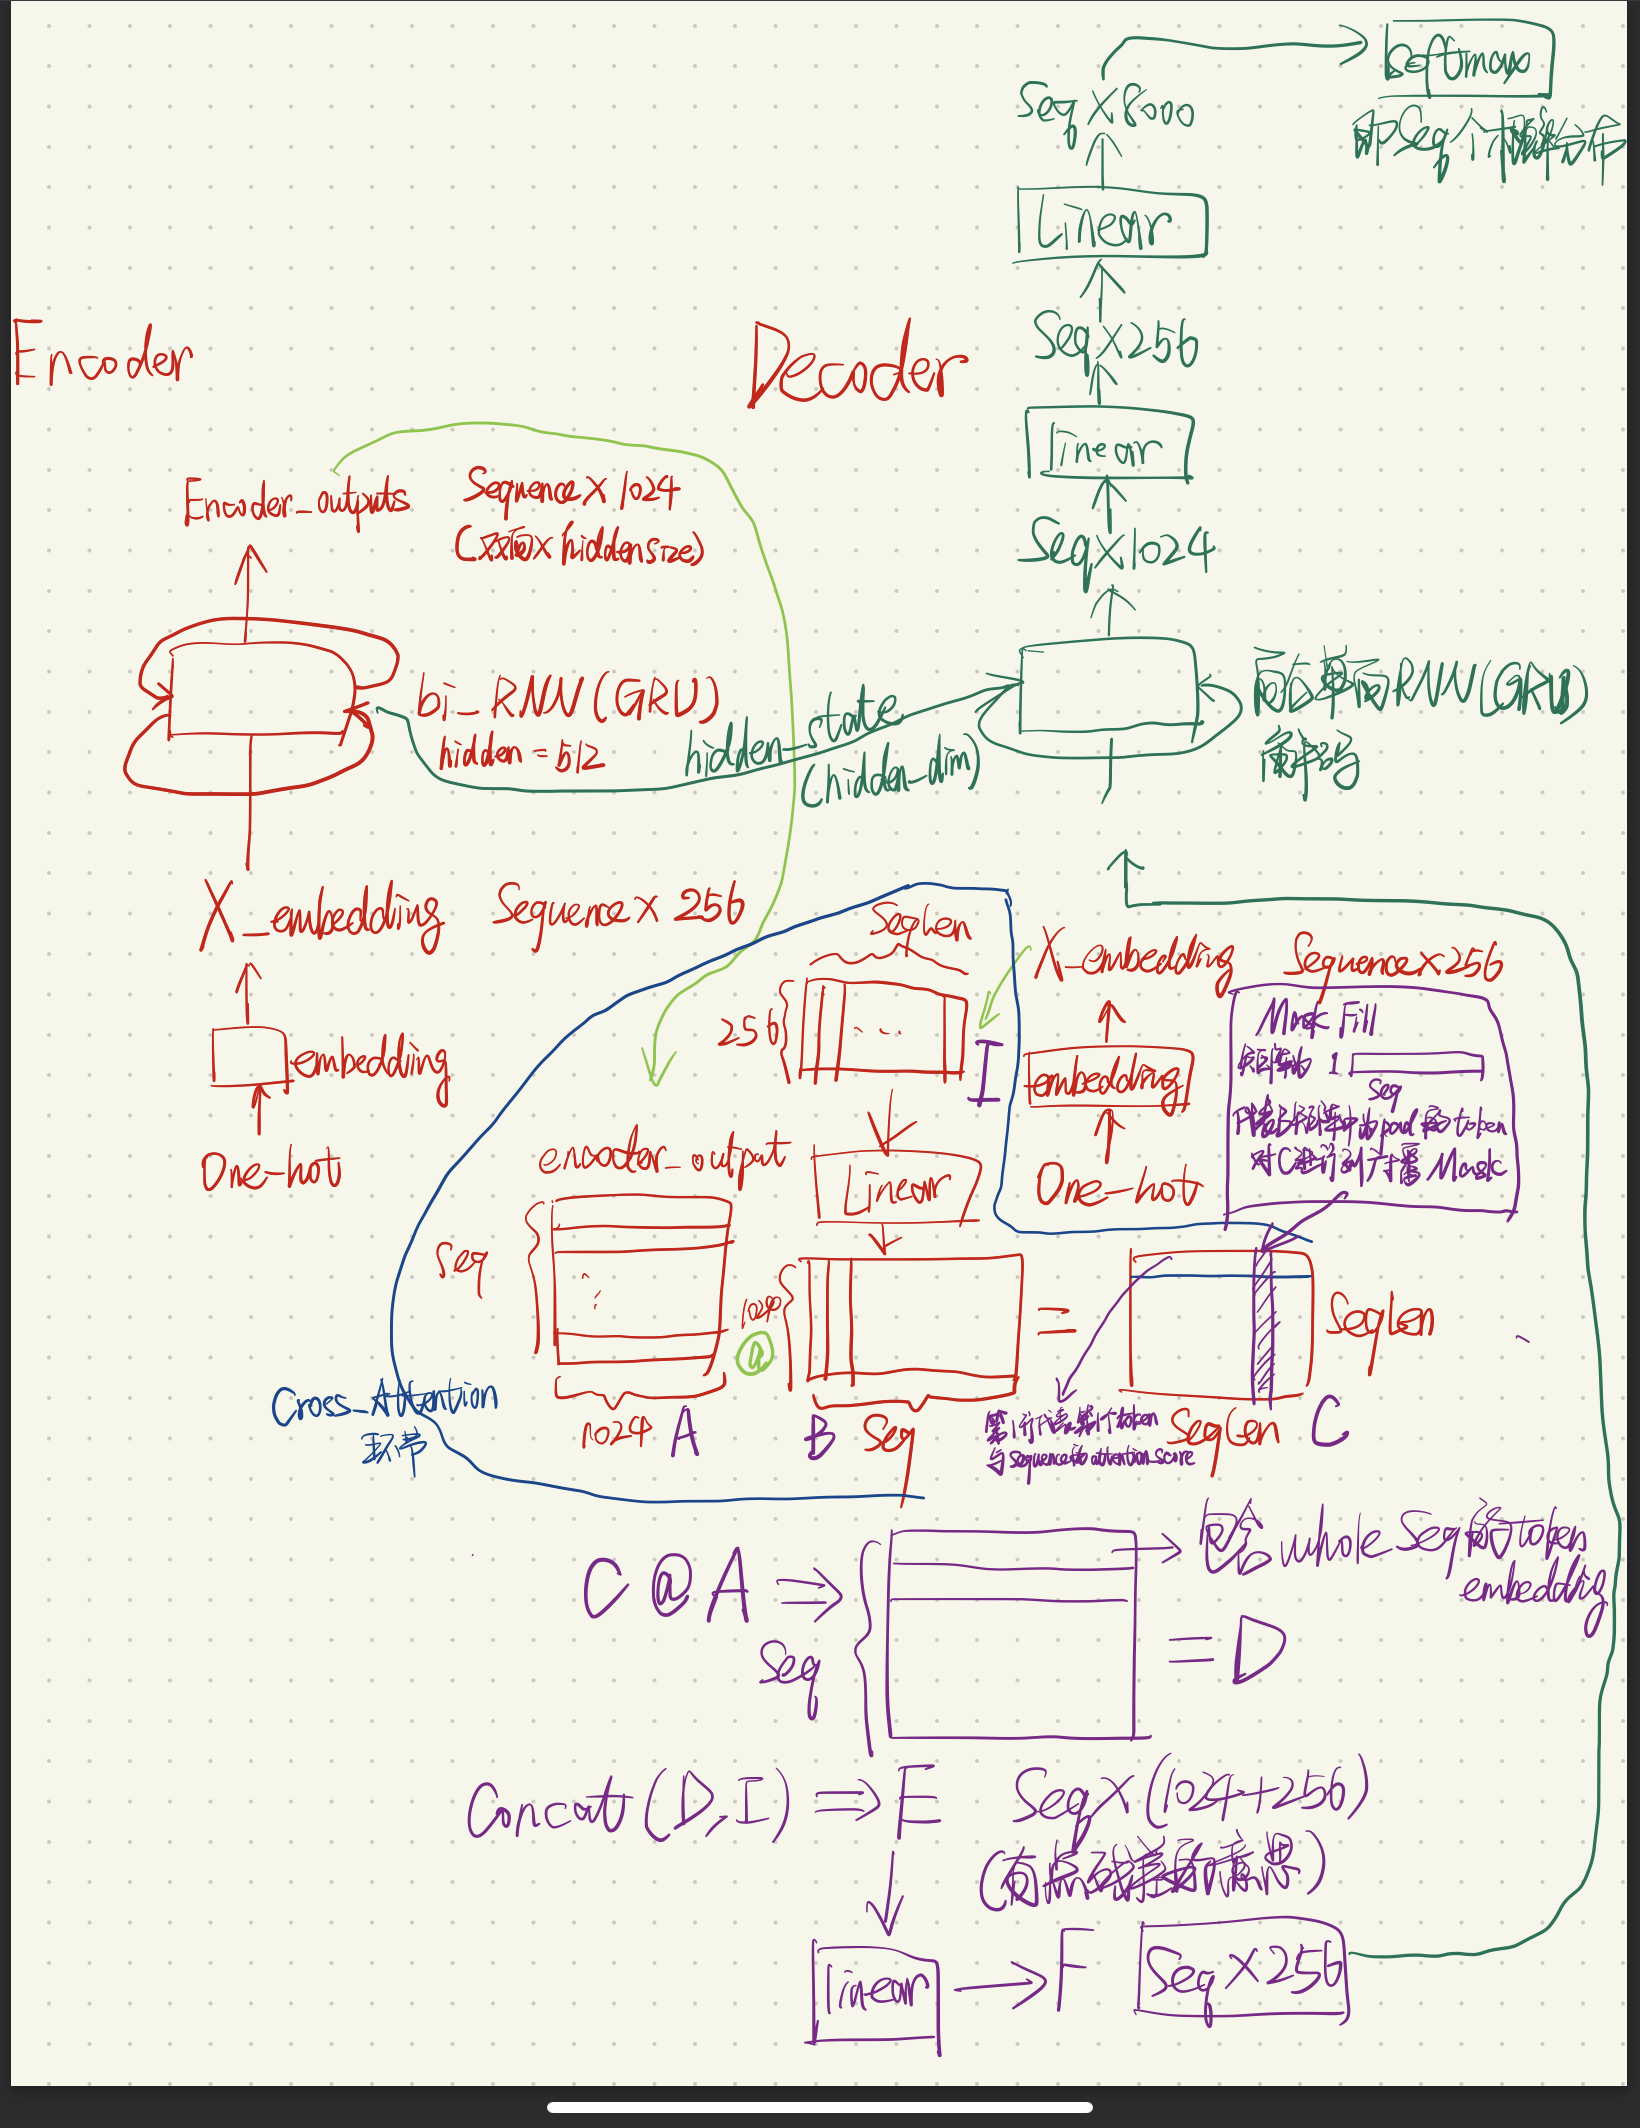 softmax
Seq×8000
即Seq个概率分布
Linear
Encoder
Decoder
Seq×256
linear
Encoder_outputs
Sequence×1024
(双向×hiddensize)
Seq×1024
bi_RNN(GRU)
hidden=512
hidden_state
(hidden_dim)
向右单向RNN(GRU)
解码
X_embedding
Sequence×256
SeqLen
256
I
X_embedding
Sequence×256
embedding
One-hot
embedding
One-hot
Mask Fill
矩阵为 1
Seq
中为pad的token
对C进行 Mask
encoder_output
Linear
Seq
1024
@
=
SeqLen
Cross_Attention
环节
1024
A
B
Seq
第1行代表第1个token
与sequence的attention_score
SeqLen
C
C @ A ⇒
Seq
包含 whole Seq的token
embedding
= D
Concat(D,I) ⇒ E
Seq×(1024+256)
(有点残差的意思)
linear
F
Seq×256